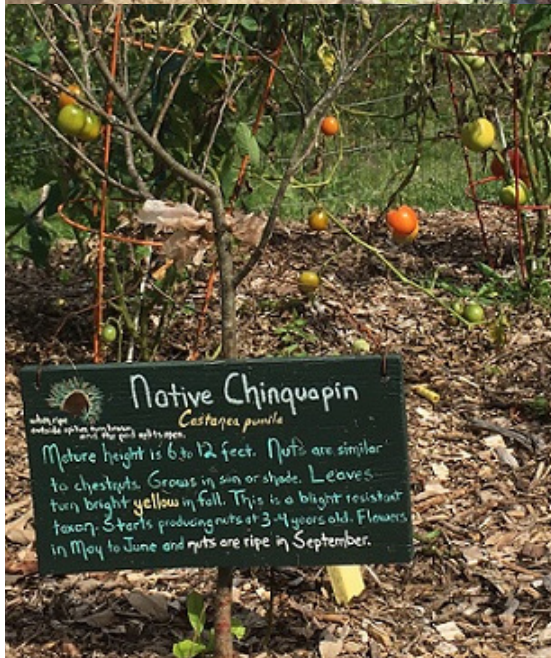 Native Chinquapin
Castanea pumila
when ripe
outside spikes turn brown
and the pod splits open.
Mature height is 6 to 12 feet. Nuts are similar
to chestnuts. Grows in sun or shade. Leaves
turn bright yellow in fall. This is a blight resistant
taxon. Starts producing nuts at 3-4 years old. Flowers
in May to June and nuts are ripe in September.